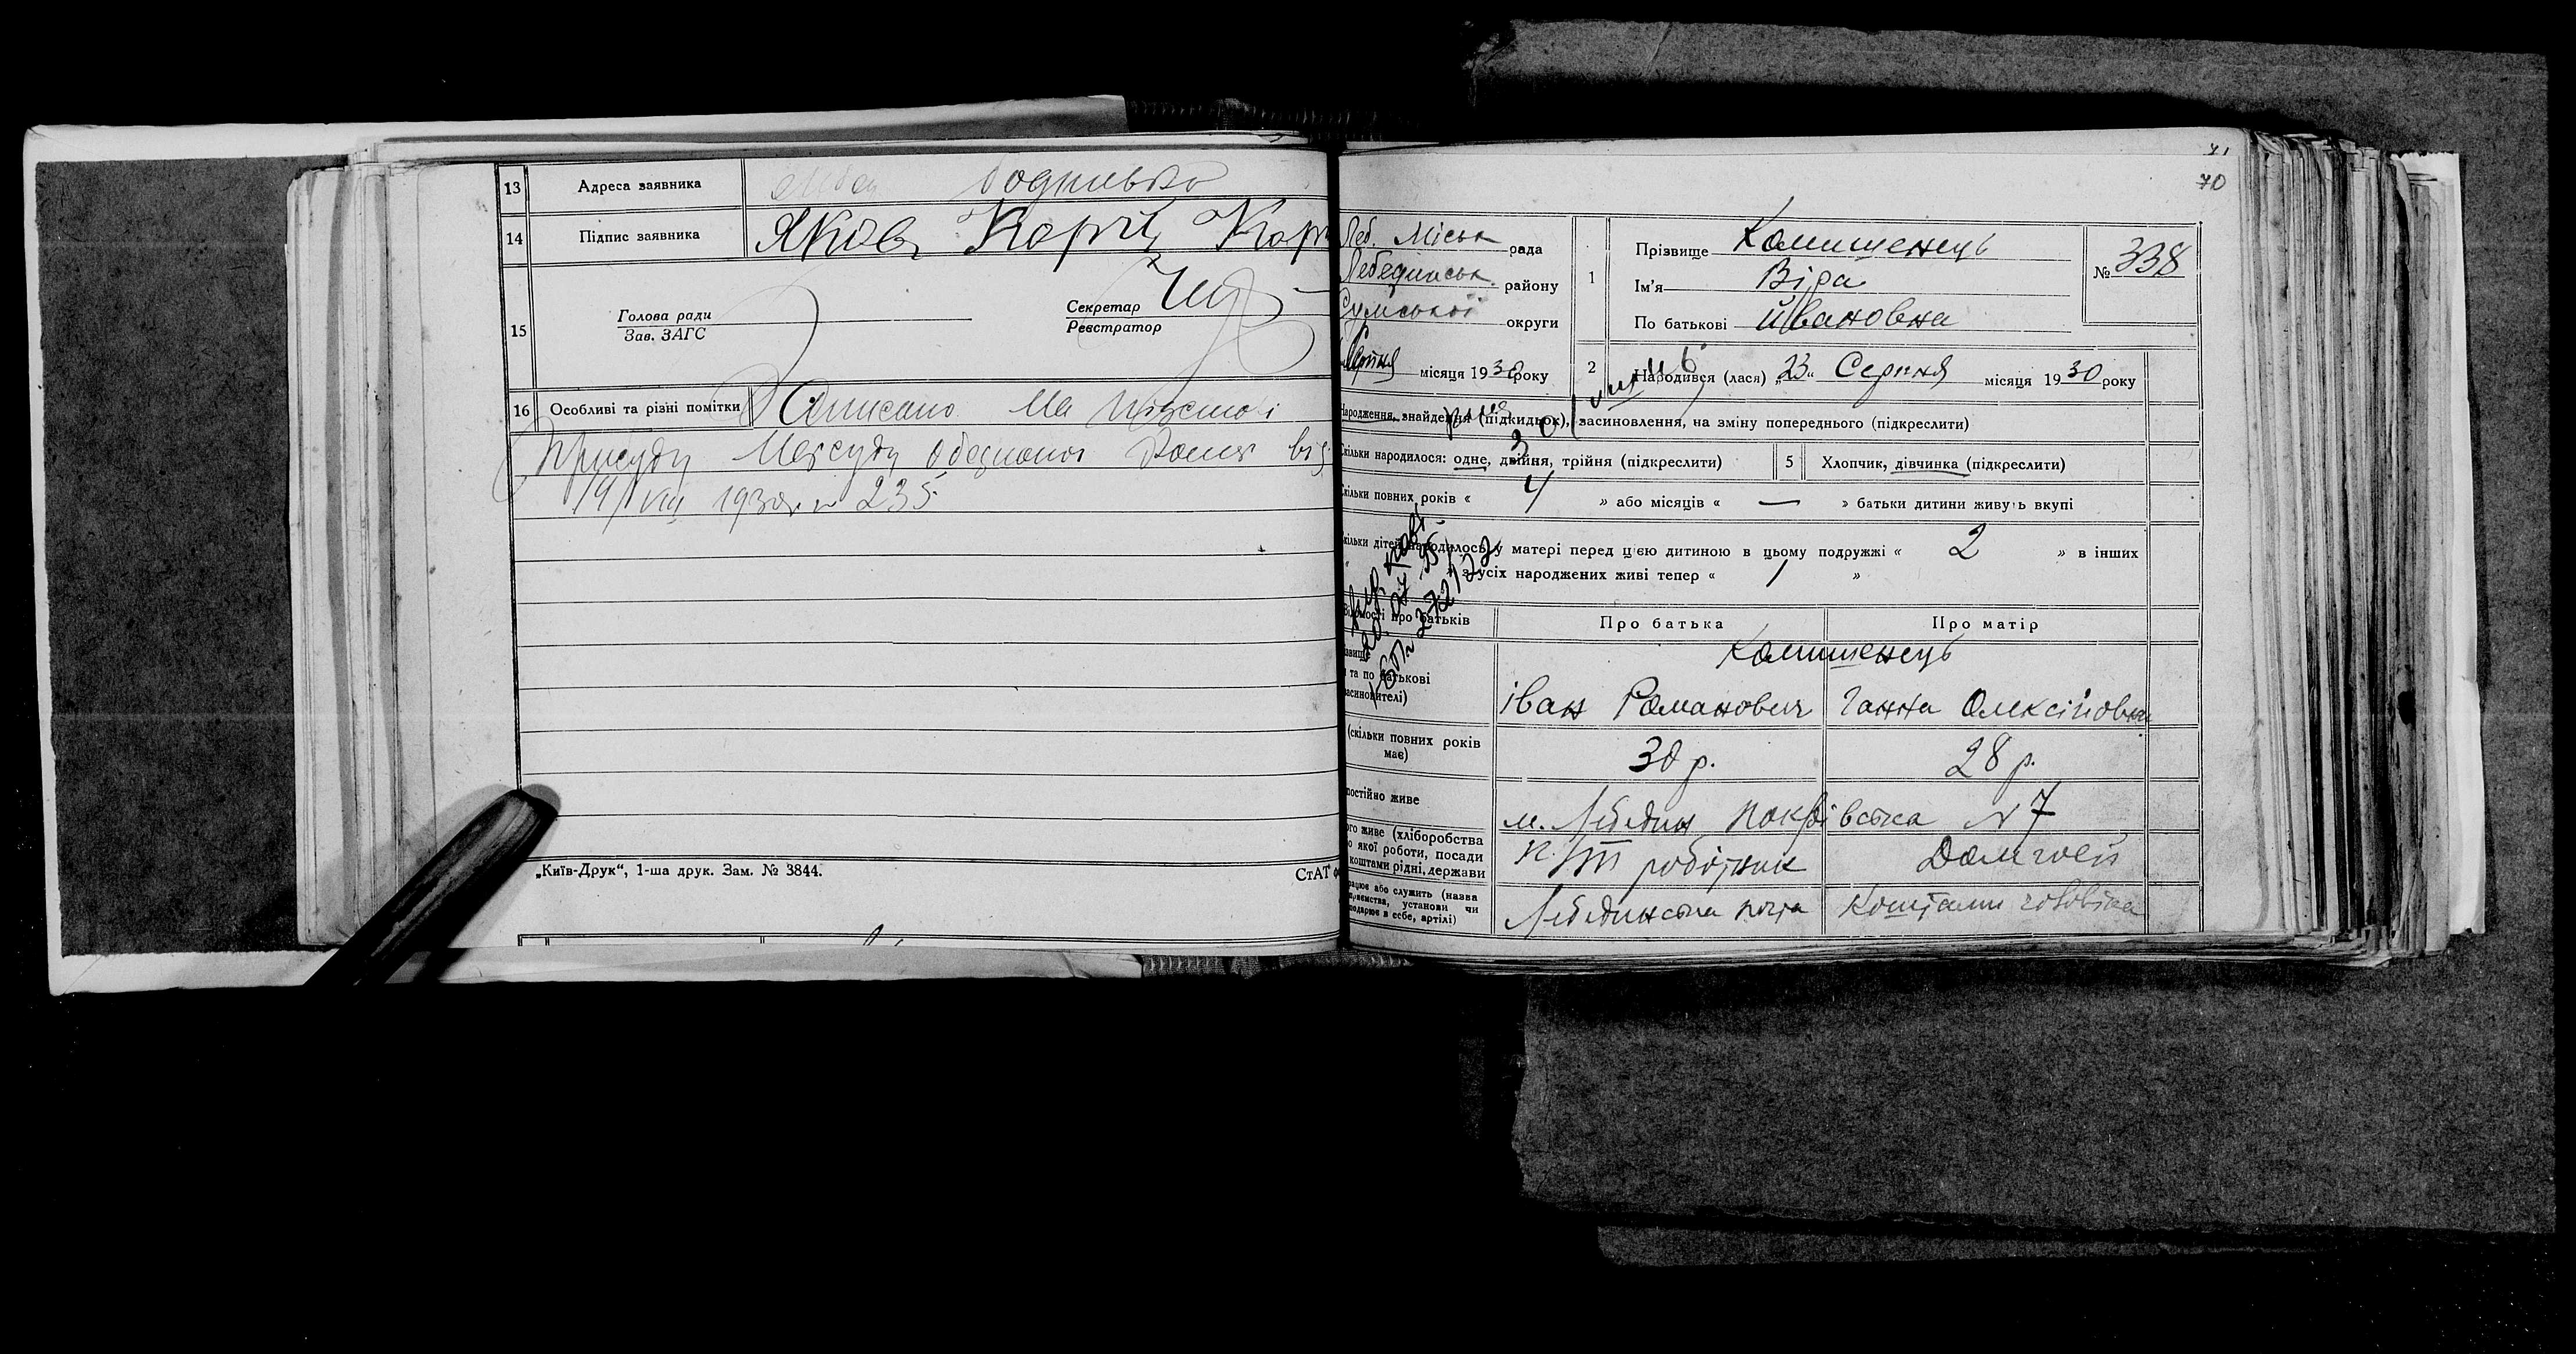 13 Адреса заявника
14 Підпис заявника Яков Корій Кор
15 Голова ради
Зав. ЗАГС
Секретар
Реєстратор
16 Особливі та різні помітки Записано на підставі
Присуду Нарсуду від
19/VIII 1930р. № 235
„Київ-Друк“, 1-ша друк. Зам. № 3844.
СтАТ
71
70
Леб. Міськ рада
Лебединськ. району
Сумської округи
Серпня місяця 1930 року
1 Прізвище Комишенець
Ім'я Віра
По батькові Ивановна
№ 338
2 Народився (лася) „23“ Серпня місяця 1930 року
Народження, знайдення (підкидьок), засиновлення, на зміну попереднього (підкреслити)
кільки народилося: одне, двійня, трійня (підкреслити)
5 Хлопчик, дівчинка (підкреслити)
кільки повних років « 4 » або місяців « — » батьки дитини живуть вкупі
кільки дітей народилось у матері перед цією дитиною в цьому подружжі « 2 » в інших
» з усіх народжених живі тепер « 1 »
Відомості про батьків
Про батька
Про матір
звище
та по батькові
засиновителі)
Комишенець
Іван Романович
Ганна Олексійовна
(скільки повних років
має)
30 р.
28 р.
постійно живе
м. Лебедин Покрівська № 7
ого живе (хліборобства
о якої роботи, посади
коштами рідні, держави
робітник
Домгосп
рацює або служить (назва
приємства, установи чи
подарює в себе, артілі)
Лебединська почта
Коштами чоловіка